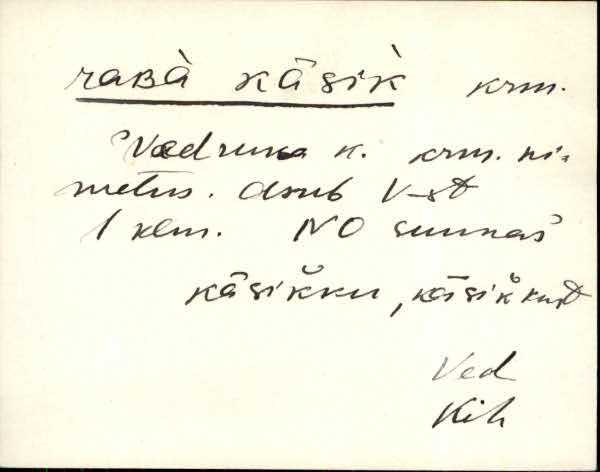 raʙà kǟsìk̀ krm.
Vedruka k. krm. ni-
metus. asub V-st
1 klm. NO suunas
kǟsik̆ku, kǟsik̆kust
Ved
Kih